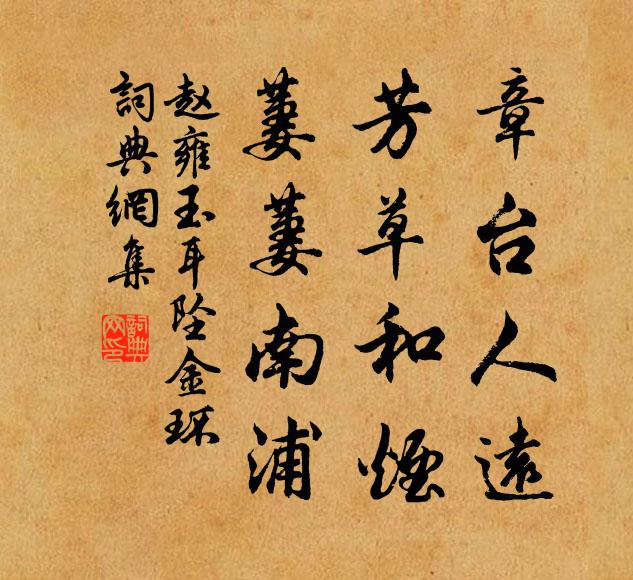 章台人遠
芳草和煙
萋萋南浦
赵雍玉耳坠金环
詞典網集
詞典網印